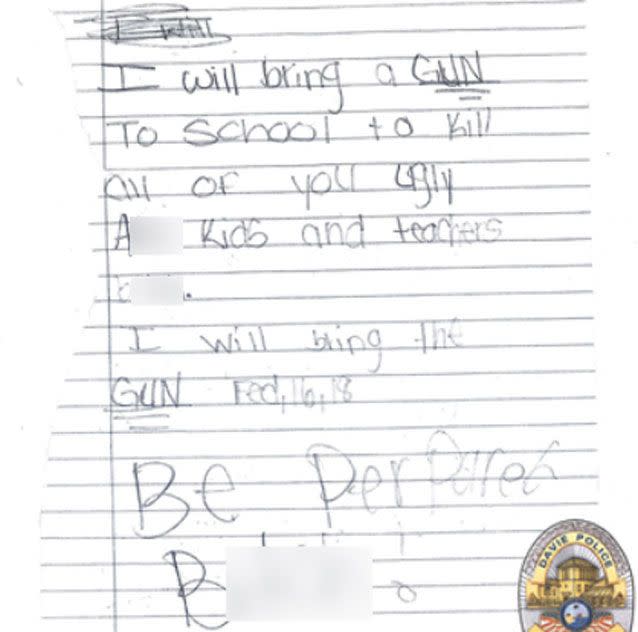 I will
I will bring a GUN
To School to Kill
All of you ugly
A Kids and teachers
I will bring the
GUN Fed,16,18
Be Perpared
B
DAVIE POLICE